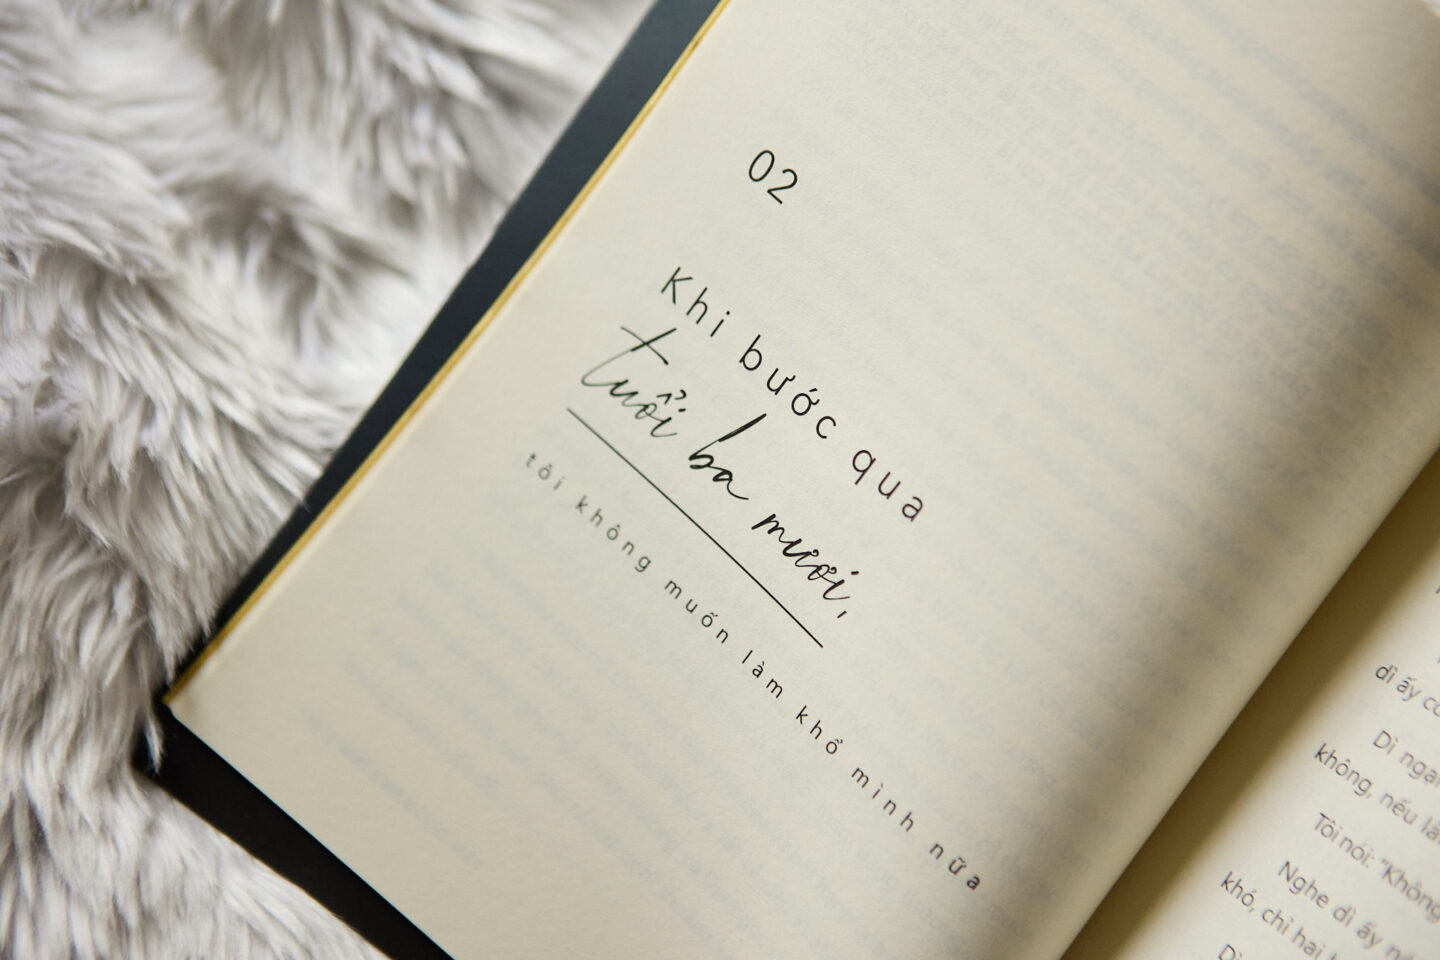 02
Khi bước qua
tuổi ba mươi,
tôi không muốn làm khổ mình nữa
dì ấy
Dì
không, nếu
Tôi nói: "Không
Nghe dì ấy
khó, chỉ hai